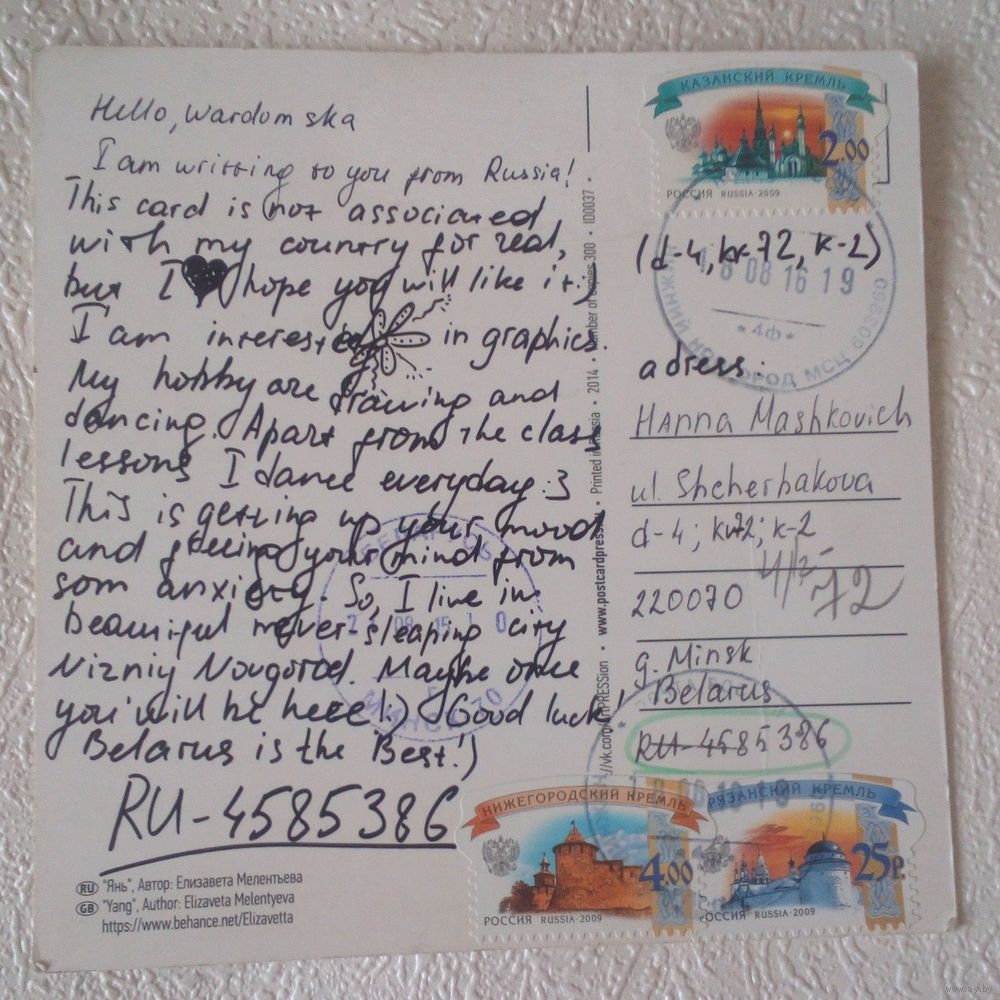 Hello, Wardomska
I am writting to you from Russia!
This card is not associated
with my country for real,
but I hope you will like it :)
I am interested in graphics.
My hobby are drawing and
dancing. Apart from the class
lessons I dance everyday :3
This is getting up your mood
and freeing your mind from
som anxiety. So, I live in
beautiful never-sleaping city
Nizniy Novgorod. Maybe once
you will be here!:) Good luck!
Belarus is the Best!)
RU-4585386
RU "Янь", Автор: Елизавета Мелентьева
GB "Yang", Author: Elizaveta Melentyeva
https://www.behance.net/Elizavetta
Printed in Russia • 2014 • Number of copies 300 • ID0037 •
www.postcardpress
КАЗАНСКИЙ КРЕМЛЬ
2.00
РОССИЯ RUSSIA·2009
(d-4, kv-72, k-2)
18 08 16 19
*4Ф*
НИЖНИЙ НОВГОРОД МСЦ 603960
adress:
Hanna Mashkovich
ul. Shcherbakova
d-4; kv72; k-2
4/2-72
220070
g. Minsk
Belarus
RU-4585386
НИЖЕГОРОДСКИЙ КРЕМЛЬ
4.00
РОССИЯ RUSSIA·2009
РЯЗАНСКИЙ КРЕМЛЬ
25р.
РОССИЯ RUSSIA·2009
www.ay.by